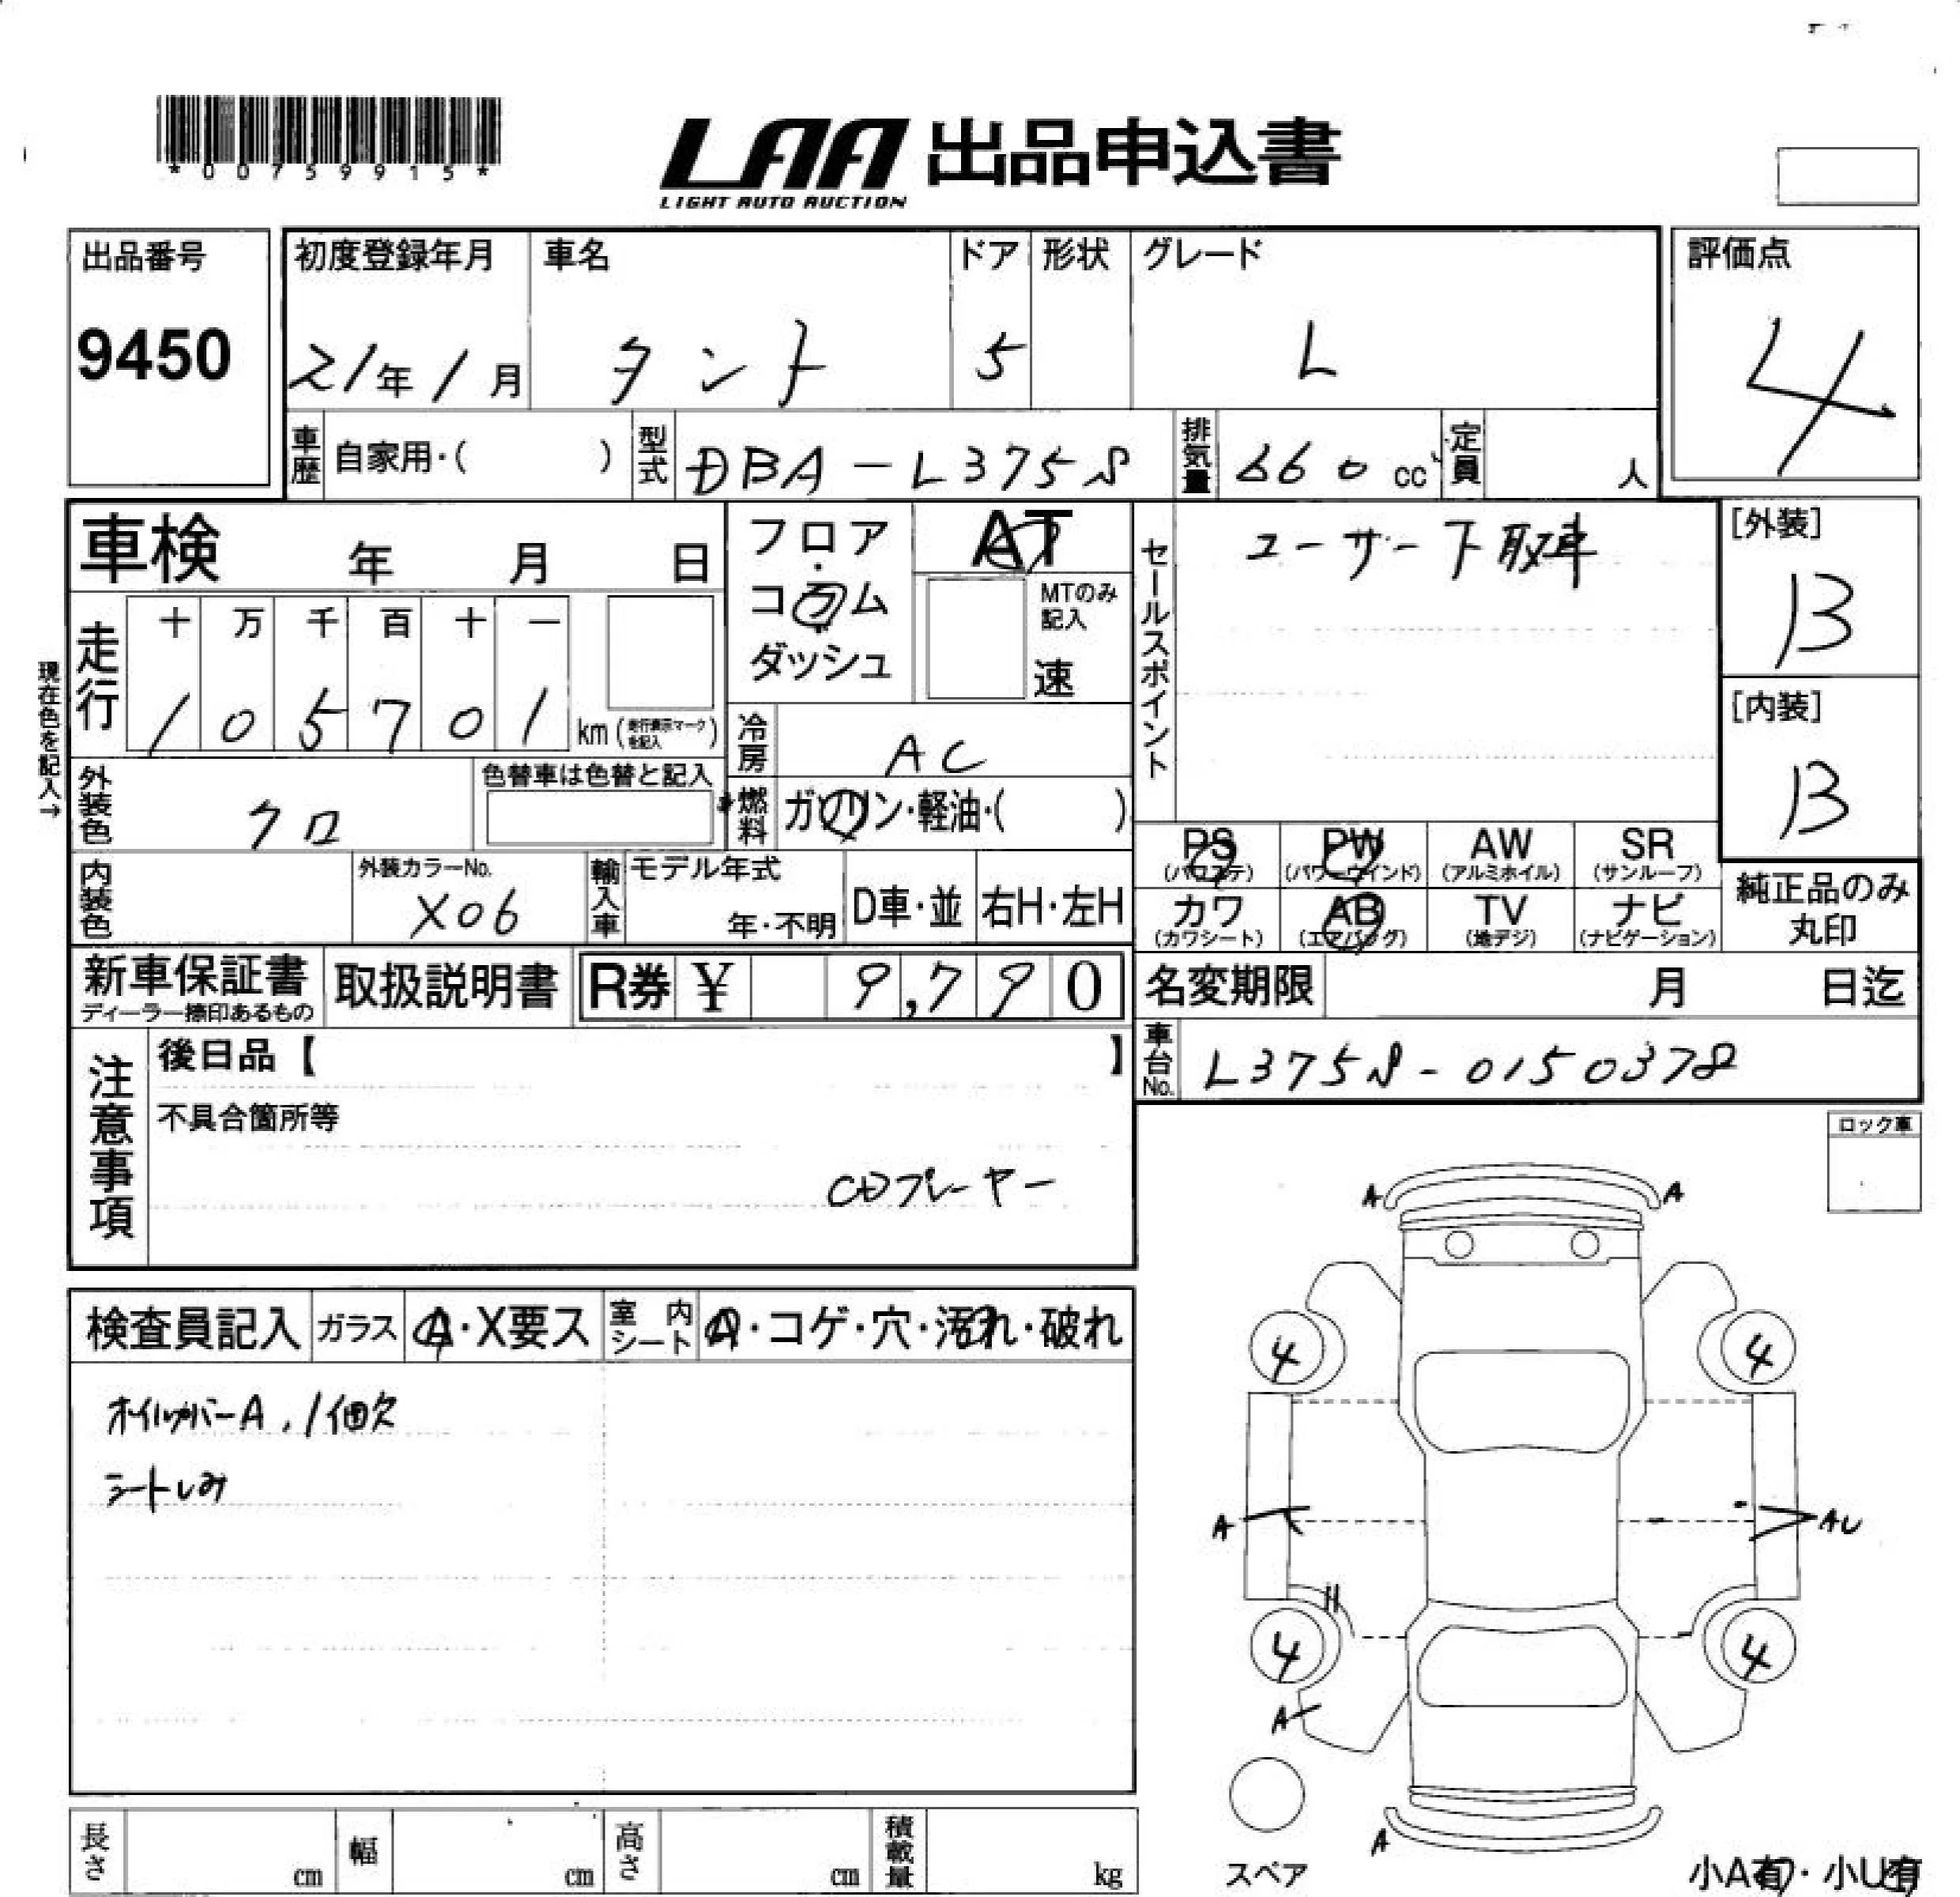 *00759915*
LAA 出品申込書
LIGHT AUTO AUCTION
出品番号
9450
初度登録年月
21年1月
車名
タント
ドア
5
形状
グレード
L
評価点
4
車歴
自家用・( )
型式
DBA-L375S
排気量
660 cc
定員
人
車検 年 月 日
フロア
・
コラム
・
ダッシュ
AT
MTのみ
記入
速
セールスポイント
ユーザー下取車
[外装]
B
[内装]
B
現在色を記入→
走行
十 万 千 百 十 一
1 0 5 7 0 1
km (走行表示マークを記入)
冷房
AC
外装色
クロ
色替車は色替と記入
燃料
ガソリン・軽油・( )
内装色
外装カラーNo.
X06
輸入車
モデル年式
年・不明
D車・並
右H・左H
PS
(パワステ)
PW
(パワーウインド)
AW
(アルミホイル)
SR
(サンルーフ)
カワ
(カワシート)
AB
(エアバッグ)
TV
(地デジ)
ナビ
(ナビゲーション)
純正品のみ
丸印
新車保証書
ディーラー捺印あるもの
取扱説明書
R券 ¥ 9,790
名変期限 月 日迄
車台No.
L375S-0150378
注意事項
後日品【 】
不具合箇所等
CDプレーヤー
ロック車
検査員記入
ガラス
A・X要ス
室内シート
A・コゲ・穴・汚れ・破れ
ホイルカバーA、1個欠
シートしみ
A
A
4
4
A
AU
4
4
A
A
スペア
小A有・小U有
長さ cm
幅 cm
高さ cm
積載量 kg